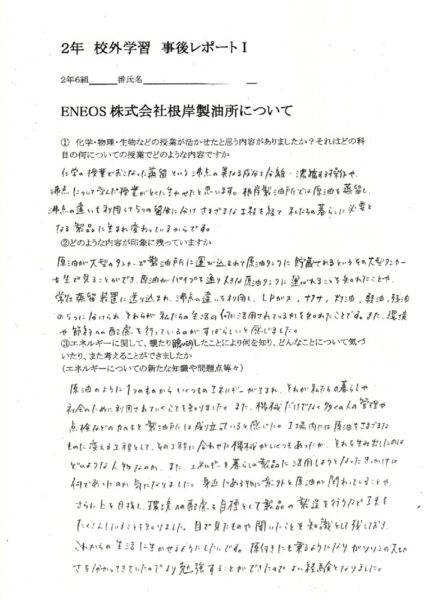 2年 校外学習 事後レポートⅠ
2年6組　　　番氏名
ENEOS 株式会社根岸製油所について
① 化学・物理・生物などの授業が活かせたと思う内容がありましたか？それはどの科
目の何についての授業でどのような内容ですか
化学の授業でおこなった蒸留という沸点の異なる成分を分離・濃縮する操作や、
沸点について学んだ授業がとくに生かせたと思います。根岸製油所では原油を蒸留し、
沸点の違いを利用して5つの留分に分けさまざまな工程を経て、私たちの暮らしに必要と
なる製品に生まれ変わっているからです。
②どのような内容が印象に残っていますか
原油が大型のタンカーで製油所に運び込まれて原油タンクに貯蔵されるというその大型タンカー
を生で見ることができ、原油がパイプを通り大きな原油タンクに運ばれることを知れたことや、
常圧蒸留装置に送り込まれ、沸点の違いを利用し、LPガス、ナフサ、灯油、軽油、残油
の5つに分けられ、それらが私たちの生活の何に活用されているかを知れたことです。また、環境
や節約への配慮を行っているのがすばらしいと感じました。
③エネルギーに関して、観たり聴いたりしたことにより何を知り、どんなことについて気づ
いたり、また考えることができましたか
(エネルギーについての新たな知識や問題点等々)
原油のように1つのものからいくつものエネルギーが生まれ、それが私たちの暮らしや
社会のために利用されていくことを知りました。また、機械だけでなく多くの人の管理や
点検などの力もあり製油所は成り立っていると感じた。工場内には原油をさまざまな
ものに変える工程として、その工程に合わせた機械がいくつもあったが、それを生み出したのは
どのような人物なのか、また、エネルギーを暮らしの製品に活用しようとなったきっかけは
何だったのか気になりました。身近にある物に意外と原油が関わっていることや、
さらに上を目指し、環境への配慮を目標として製品の製造を行うなど工夫を
たくさんしていることを知りました。目で見たものや聞いたことを知識として残しておき、
これからの生活に生かせるようにしたいです。原付きにも乗るようになりガソリンの大切
さを分かってきていたのでより勉強することができたのでよい経験となりました。